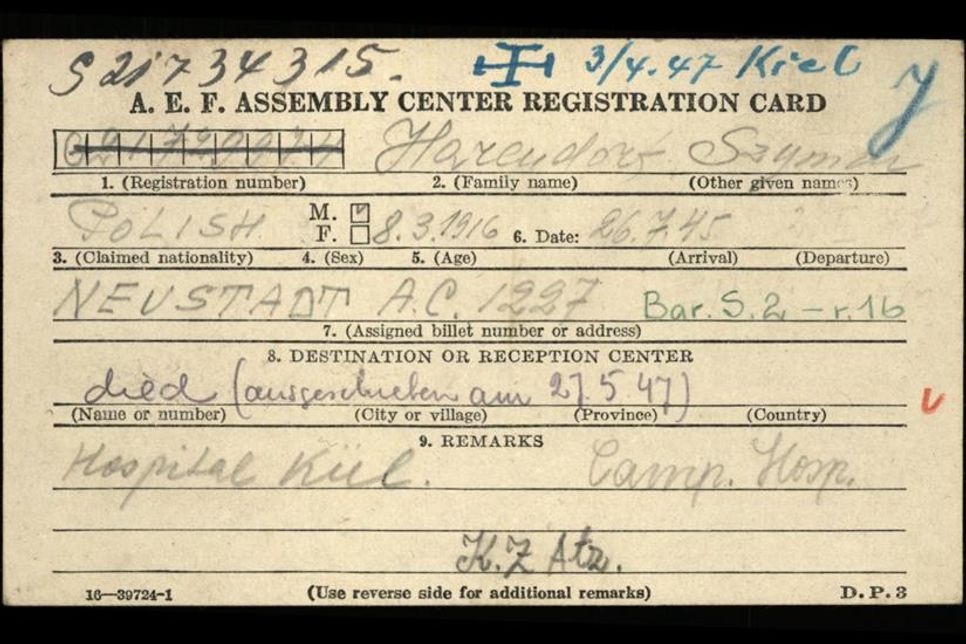 S21734315. 3/4.47 Kiel
J
A. E. F. ASSEMBLY CENTER REGISTRATION CARD
Szymon
1. (Registration number) 2. (Family name) (Other given names)
POLISH M. F. 8.3.1916 6. Date: 26.7.45
3. (Claimed nationality) 4. (Sex) 5. (Age) (Arrival) (Departure)
NEUSTADT A.C. 1227 Bar. S. 2 – r. 16
7. (Assigned billet number or address)
8. DESTINATION OR RECEPTION CENTER
died (ausgeschrieben am 27.5.47)
(Name or number) (City or village) (Province) (Country)
9. REMARKS
Hospital Kiel. Camp. Hosp.
K.Z Atz.
16—39724-1 (Use reverse side for additional remarks) D. P. 3